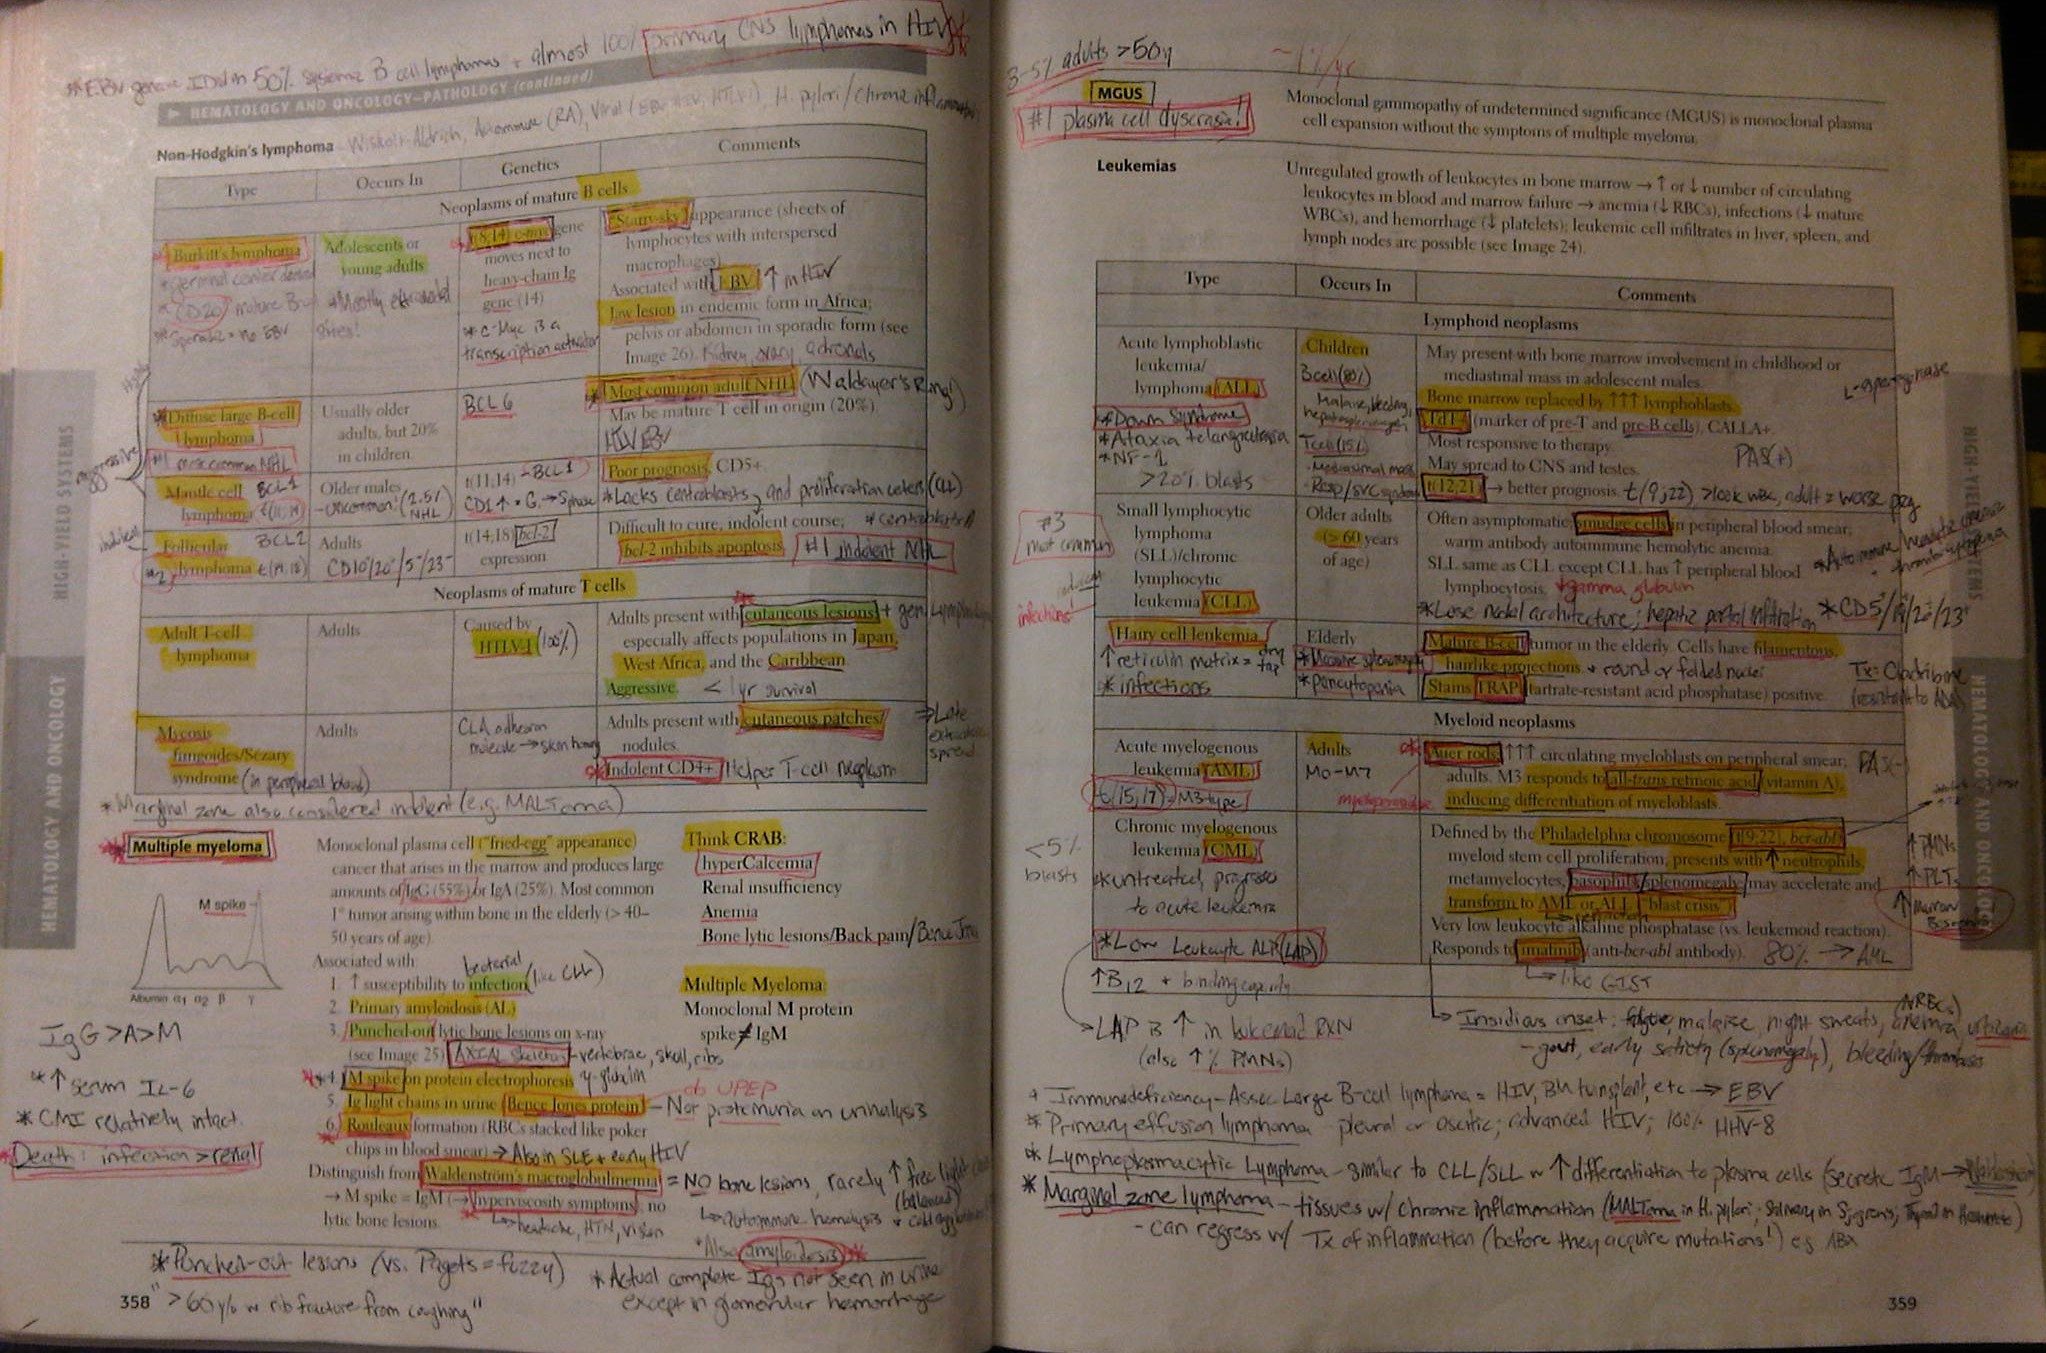 *EBV genome IDed in 50% systemic B cell lymphomas + almost 100% primary CNS lymphomas in HIV *
▶ HEMATOLOGY AND ONCOLOGY—PATHOLOGY (continued)
Wiskott-Aldrich, Autoimmune (RA), Viral (EBV, HIV, HTLV1), H. pylori/chronic inflammation
Non-Hodgkin's lymphoma
Type
Occurs In
Genetics
Comments
Neoplasms of mature B cells
Burkitt's lymphoma
*Germinal center derived
*CD20 mature B cell
*Sporadic = no EBV
Adolescents or
young adults
*Mostly extranodal
sites!
t(8;14) c-myc gene
moves next to
heavy-chain Ig
gene (14)
*c-Myc is a
transcription activator
Starry-sky appearance (sheets of
lymphocytes with interspersed
macrophages)
Associated with EBV ↑ in HIV
Jaw lesion in endemic form in Africa;
pelvis or abdomen in sporadic form (see
Image 26). Kidney, ovary, adrenals
aggressive
*Diffuse large B-cell
lymphoma
#1 most common NHL
Usually older
adults, but 20%
in children.
BCL6
*Most common adult NHL (Waldayer's Ring!)
May be mature T cell in origin (20%).
HIV EBV
Mantle cell BCL1
lymphoma t(11,14)
Older males
-uncommon! (2.5%
NHL)
t(11;14) -BCL1
CD1↑ = G₁→S phase
Poor prognosis, CD5+.
*Lacks centroblasts, and proliferation centers (CLL)
indolent
Follicular BCL2
#2 lymphoma t(14,18)
Adults
CD10+/20+/5-/23-
t(14;18) bcl-2
expression
Difficult to cure; indolent course; *centroblasts
bcl-2 inhibits apoptosis. #1 indolent NHL
Neoplasms of mature T cells
Adult T-cell
lymphoma
Adults
Caused by
HTLV-1 (100%)
Adults present with cutaneous lesions; + gen.
especially affects populations in Japan,
West Africa, and the Caribbean.
Aggressive. < 1 yr survival
Mycosis
fungoides/Sézary
syndrome (in peripheral blood)
Adults
CLA adhesion
molecule → skin homing
Adults present with cutaneous patches/
nodules.
Indolent CD4+ Helper T-cell neoplasm
⇒ Late
extracutaneous
spread
*Marginal zone also considered indolent (e.g. MALToma)
Multiple myeloma
M spike
Albumin α1 α2 β γ
Monoclonal plasma cell ("fried-egg" appearance)
cancer that arises in the marrow and produces large
amounts of IgG (55%) or IgA (25%). Most common
1° tumor arising within bone in the elderly (> 40–
50 years of age).
Associated with:
bacterial
1. ↑ susceptibility to infection (like CLL)
2. Primary amyloidosis (AL)
3. Punched-out lytic bone lesions on x-ray
(see Image 25) AXIAL skeleton - vertebrae, skull, ribs
4. M spike on protein electrophoresis γ-globulin
5. Ig light chains in urine (Bence Jones protein) - Not proteinuria on urinalysis
do UPEP
6. Rouleaux formation (RBCs stacked like poker
chips in blood smear) → Also in SLE + early HIV
Distinguish from Waldenström's macroglobulinemia = NO bone lesions, rarely ↑ free light
→ M spike = IgM (→ hyperviscosity symptoms); no
lytic bone lesions.
↳ headache, HTN, vision
↳ autoimmune hemolysis + cold agglutinins
*Also amyloidosis *
Think CRAB:
hyperCalcemia
Renal insufficiency
Anemia
Bone lytic lesions/Back pain/Bence Jones
Multiple Myeloma:
Monoclonal M protein
spike ≠ IgM
IgG>A>M
*↑ serum IL-6
*CMI relatively intact.
*Death: infection > renal
*Punched-out lesions (vs. Pagets = fuzzy)
">60 y/o w rib fracture from coughing"
*Actual complete Igs not seen in urine
except in glomerular hemorrhage
358
HIGH-YIELD SYSTEMS
HEMATOLOGY AND ONCOLOGY
3-5% adults >50y
~1%/yr
MGUS
#1 plasma cell dyscrasia!
Monoclonal gammopathy of undetermined significance (MGUS) is monoclonal plasma
cell expansion without the symptoms of multiple myeloma.
Leukemias
Unregulated growth of leukocytes in bone marrow → ↑ or ↓ number of circulating
leukocytes in blood and marrow failure → anemia (↓ RBCs), infections (↓ mature
WBCs), and hemorrhage (↓ platelets); leukemic cell infiltrates in liver, spleen, and
lymph nodes are possible (see Image 24).
Type
Occurs In
Comments
Lymphoid neoplasms
Acute lymphoblastic
leukemia/
lymphoma (ALL)
*Down Syndrome
*Ataxia telangiectasia
*NF-1
>20% blasts
Children
B cell (80%)
Malaise, bleeding,
hepatosplenomegaly
T cell (15%)
-Mediastinal mass
-Resp/SVC syndrome
May present with bone marrow involvement in childhood or
mediastinal mass in adolescent males.
Bone marrow replaced by ↑↑↑ lymphoblasts.
TdT+ (marker of pre-T and pre-B cells), CALLA+.
Most responsive to therapy.
May spread to CNS and testes.
t(12;21) → better prognosis. t(9;22) >100k WBC, adult = worse prog
PAS(+)
L-asparaginase
#3
most common
infections!
Small lymphocytic
lymphoma
(SLL)/chronic
lymphocytic
leukemia (CLL)
Older adults
(> 60 years
of age)
Often asymptomatic; smudge cells in peripheral blood smear;
warm antibody autoimmune hemolytic anemia.
SLL same as CLL except CLL has ↑ peripheral blood
lymphocytosis. ↓gamma globulin
*Lose nodal architecture; hepatic portal infiltration *CD5/19/20/23+
*Autoimmune hemolytic anemia
+ thrombocytopenia
Hairy cell leukemia
↑ reticulin matrix = dry tap
*infections
Elderly
*Massive splenomegaly
*pancytopenia
Mature B-cell tumor in the elderly. Cells have filamentous,
hairlike projections. + round or folded nuclei
Stains TRAP (tartrate-resistant acid phosphatase) positive.
Tx: Cladribine
(resistant to ADA)
Myeloid neoplasms
Acute myelogenous
leukemia (AML)
t(15,17) = M3 type
Adults
M0-M7
Auer rods; ↑↑↑ circulating myeloblasts on peripheral smear;
adults. M3 responds to all-trans retinoic acid (vitamin A),
inducing differentiation of myeloblasts.
myeloperoxidase
PAS(-)
<5%
blasts
Chronic myelogenous
leukemia (CML)
*untreated, progresses
to acute leukemia
*Low Leukocyte ALP (LAP)
Defined by the Philadelphia chromosome (t[9;22], bcr-abl);
myeloid stem cell proliferation; presents with ↑ neutrophils,
metamyelocytes, basophils; splenomegaly; may accelerate and
transform to AML or ALL ("blast crisis").
Very low leukocyte alkaline phosphatase (vs. leukemoid reaction).
Responds to imatinib (anti-bcr-abl antibody). 80% → AML
↳ like GIST
↑ PMNs
↑ PLTs
↑ Marrow
Basophils
↑B12 + binding capacity
→ LAP is ↑ in leukemoid RXN
(also ↑% PMNs)
↳ Insidious onset: fatigue, malaise, night sweats, anemia (NRBCs), urticaria
- gout, early satiety (splenomegaly), bleeding/thrombosis
* Immunodeficiency-Assoc Large B-cell lymphoma = HIV, BM transplant, etc → EBV
* Primary effusion lymphoma - pleural or ascitic; advanced HIV; 100% HHV-8
* Lymphoplasmacytic Lymphoma - similar to CLL/SLL w ↑ differentiation to plasma cells (secrete IgM → Waldenstrom)
* Marginal zone lymphoma - tissues w/ chronic inflammation (MALToma in H. pylori; Salivary in Sjogrens; Thyroid in Hashimoto)
- can regress w/ Tx of inflammation (before they acquire mutations!) eg ABx
359
HIGH-YIELD SYSTEMS
HEMATOLOGY AND ONCOLOGY